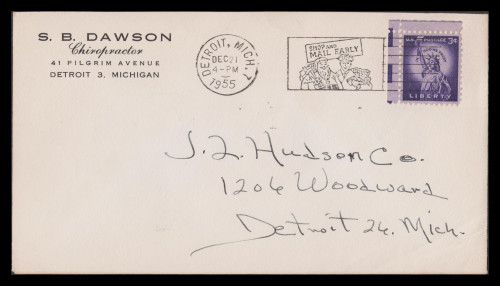 S. B. DAWSON
Chiropractor
41 PILGRIM AVENUE
DETROIT 3, MICHIGAN
DETROIT, MICH. 7
DEC 21
4-PM
1955
SHOP AND
MAIL EARLY
U.S. POSTAGE 3¢
LIBERTY
J. L. Hudson Co.
1206 Woodward
Detroit 26, Mich.